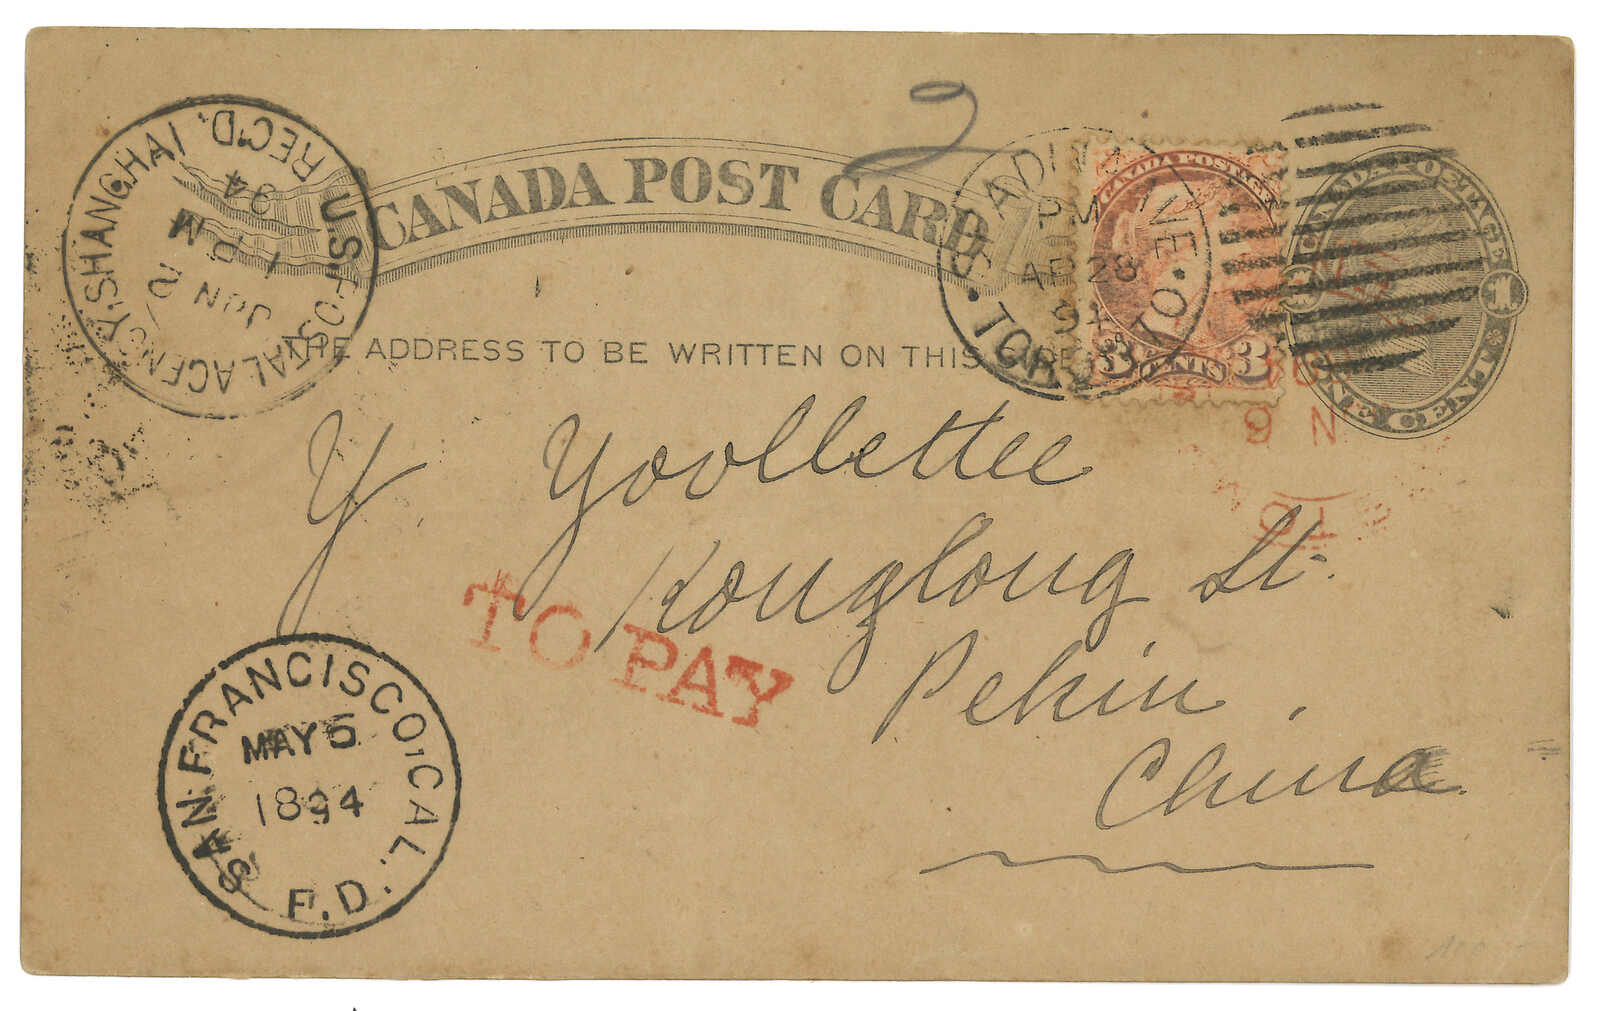 CANADA POST CARD
THE ADDRESS TO BE WRITTEN ON THIS
U.S. POSTAL AGENCY, SHANGHAI
REC'D.
94
1 PM
JUN 2
SPADINA AVE
PM
AP 28
94
TORONTO
CANADA POSTAGE
3 CENTS 3
CANADA POSTAGE
1
ONE CENT
9 N
Y Yoollettee
Konglong St.
Pekin,
China
TO PAY
SAN FRANCISCO, CAL.
MAY 5
1894
F.D.